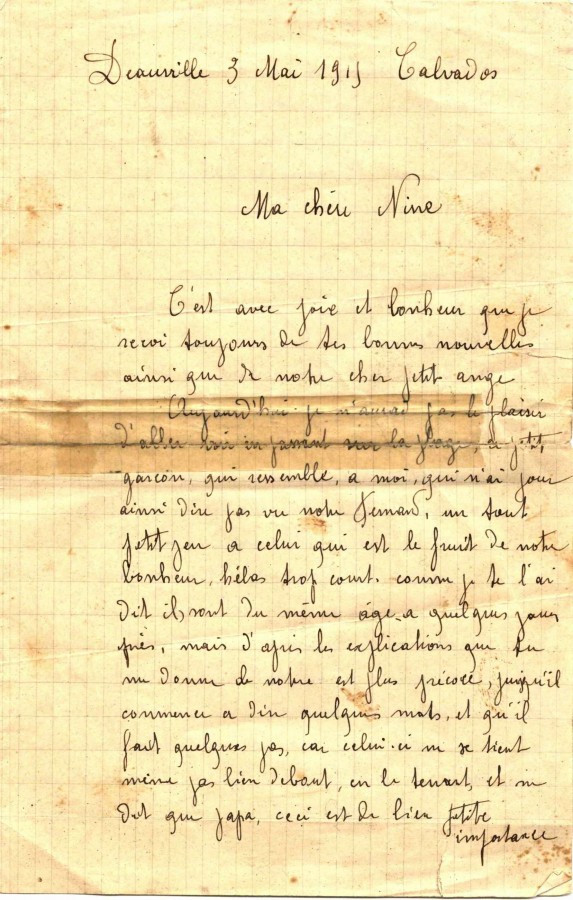 Deauville 3 Mai 1915 Calvados
Ma chère Nine
C'est avec joie et bonheur que je
recoi toujours de tes bonnes nouvelles
ainsi que de notre cher petit ange
Aujourd'hui je n'aurad pas le plaisir
d'aller voir en passant sur la plage, ce petit
garcon, qui ressemble, a moi, qui n'ai pour
ainsi dire pas vu notre Fernand, un tout
petit peu a celui qui est le fruit de notre
bonheur, hélas trop court. comme je te l'ai
dit ils sont du même âge a quelques jours
près, mais d'après les explications que tu
me donne le notre est plus précoce, puisqu'il
commence a dire quelques mots, et qu'il
fait quelques pas, car celui-ci ne se tient
même pas bien debout, en le tenant, et ne
dit que papa, ceci est de bien petite
importance